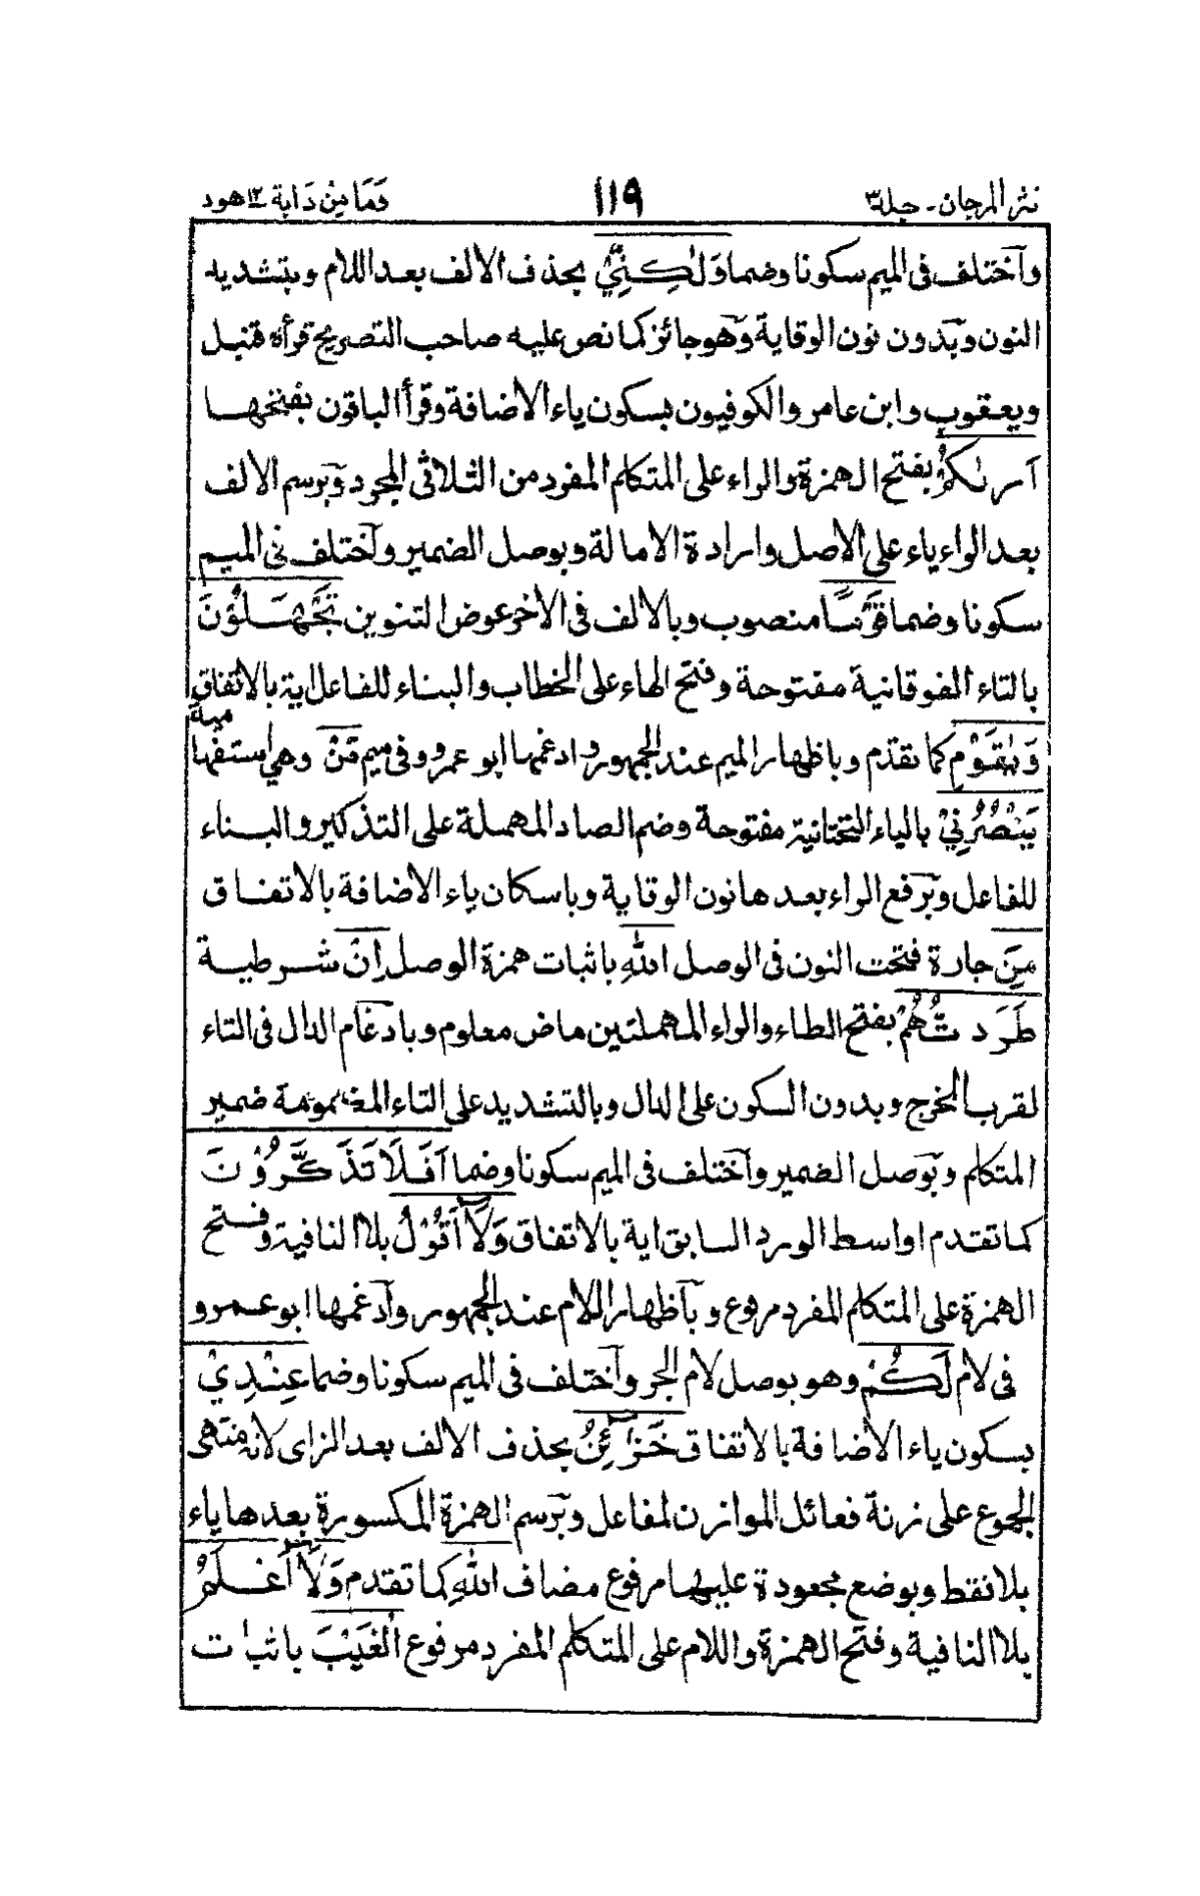 نثر المرجان - جلد٣ ١١٩ وَمَا مِنْ دَابة ١٢ هود
واختلف فى الميم سكونا وضما وَلٰكِنِّيْ بحذف الالف بعد اللام وبتشديد
النون وبدون نون الوقاية وهو جائز كما نص عليه صاحب التصريح قرأه قنبل
ويعقوب وابن عامر والكوفيون بسكون ياء الاضافة وقرأ الباقون بفتحها
اَرٰىكُمْ بفتح الهمزة والراء على المتكلم المفرد من الثلاثى المجرد وبرسم الالف
بعد الراء ياء على الاصل وارادة الامالة وبوصل الضمير واختلف فى الميم
سكونا وضما قَوْمًا منصوب وبالالف فى الاخر عوض التنوين تَجْهَلُوْنَ
بالتاء الفوقانية مفتوحة وفتح الهاء على الخطاب والبناء للفاعل اية بالاتفاق
وَيٰقَوْمِ كما تقدم وباظهار الميم عند الجمهور وادغمها ابو عمرو وفى ميم مَنْ وهى استفهامية
يَنْصُرُنِيْ بالياء التحتانية مفتوحة وضم الصاد المهملة على التذكير والبناء
للفاعل وبرفع الراء بعدها نون الوقاية وباسكان ياء الاضافة بالاتفاق
مِنَ جارة فتحت النون فى الوصل اللّٰهِ باثبات همزة الوصل اِنْ شرطية
طَرَدتُّهُمْ بفتح الطاء والراء المهملتين ماض معلوم وبادغام الدال فى التاء
لقرب المخرج وبدون السكون على الدال وبالتشديد على التاء المضمومة ضمير
المتكلم وبوصل الضمير واختلف فى الميم سكونا وضما اَفَلَا تَذَكَّرُوْنَ
كما تقدم اواسط الورد السابق اية بالاتفاق وَلَآ اَقُوْلُ بلا النافية وفتح
الهمزة على المتكلم المفرد مرفوع وباظهار اللام عند الجمهور وادغمها ابو عمرو
فى لام لَكُمْ وهو بوصل لام الجر واختلف فى الميم سكونا وضما عِنْدِيْ
بسكون ياء الاضافة بالاتفاق خَزَآئِنُ بحذف الالف بعد الزاى لانه منتهى
الجموع على زنة فعائل الموازن لمفاعل وبرسم الهمزة المكسورة بعدها ياء
بلا نقط وبوضع مجعودة عليها مرفوع مضاف اللّٰهِ كما تقدم وَلَآ اَعْلَمُ
بلا النافية وفتح الهمزة واللام على المتكلم المفرد مرفوع الْغَيْبَ باثبات